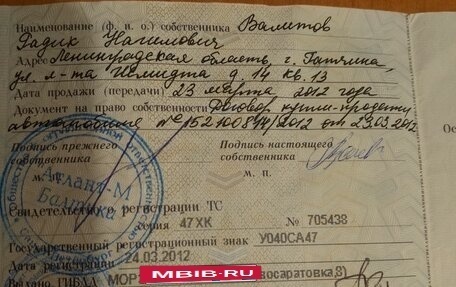 Наименование (ф. и. о.) собственника Валитов
Радик Нагимович
Адрес Ленинградская область, г. Гатчина,
ул. л-та Шмидта д. 14 кв. 13
Дата продажи (передачи) 23 марта 2012 года
Документ на право собственности Договор купли-продажи
автомобиля № 152100844/2012 от 23.03.2012
Подпись прежнего собственника
Подпись настоящего собственника
м. п.
м. п.
Атлант-М
Балтика
Свидетельство о регистрации ТС
серия 47 ХК № 705438
Государственный регистрационный знак У040СА47
Дата регистрации 24.03.2012
Выдано ГИБДД МОР
MBIB-RU
восаратовка,8)
Ос